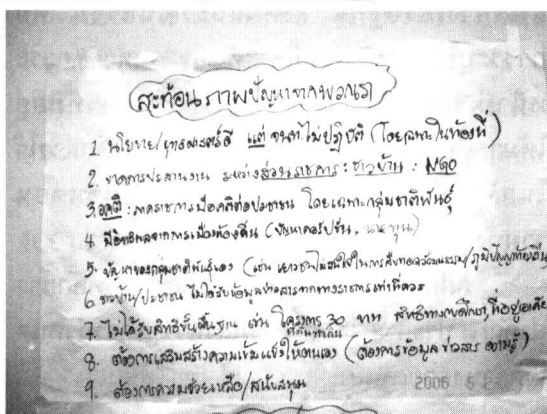 สะท้อนภาพปัญหาจากพวกเรา
1. นโยบาย/ยุทธศาสตร์ดี แต่ จนท.ไม่ปฏิบัติ (โดยเฉพาะในท้องที่)
2. ขาดการประสานงาน ระหว่างส่วนราชการ : ชาวบ้าน : NGO
3. อคติ : ภาคราชการมีอคติต่อประชาชน โดยเฉพาะกลุ่มชาติพันธุ์
4. มีอิทธิพลจากการเมืองท้องถิ่น (ปัญหาคอรัปชั่น, นายทุน)
5. ปัญหาของกลุ่มชาติพันธุ์เอง (เช่น เยาวชนไม่สนใจในการสืบทอดวัฒนธรรม/ภูมิปัญญาท้องถิ่น)
6 ชาวบ้าน/ประชาชน ไม่ได้รับข้อมูลข่าวสารจากทางราชการเท่าที่ควร
7. ไม่ได้รับสิทธิขั้นพื้นฐาน เช่น โครงการ 30 บาท สิทธิทางการศึกษา, ที่อยู่อาศัย
ที่ดินทำกิน
8. ต้องการเสริมสร้างความเข้มแข็งให้ตนเอง (ต้องการข้อมูล ข่าวสาร ความรู้)
9. ต้องการความช่วยเหลือ/สนับสนุน
2006 5